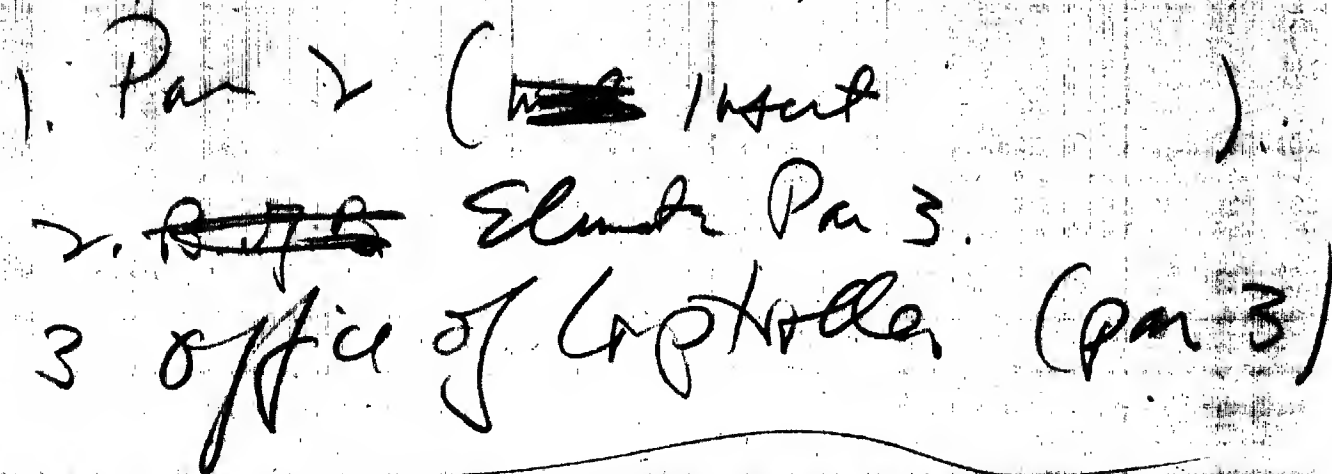 1. Par 2 ( Insert ).
2. Eliminate Par 3.
3 office of Comptroller (par 3)